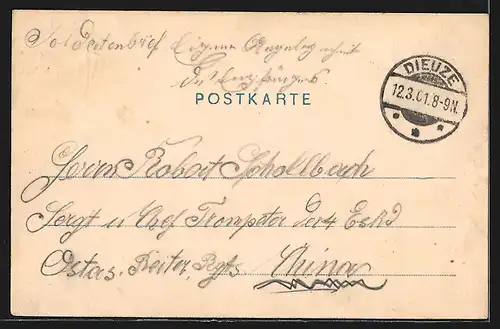 Soldatenbrief Eigene Angelegenheit
des Empfängers
POSTKARTE
DIEUZE
12.3.01.8-9N.
Herrn Robert Schollbach
Sergt u Chef Trompeter der 4 Eskd
Ostas. Reiter. Rgts China